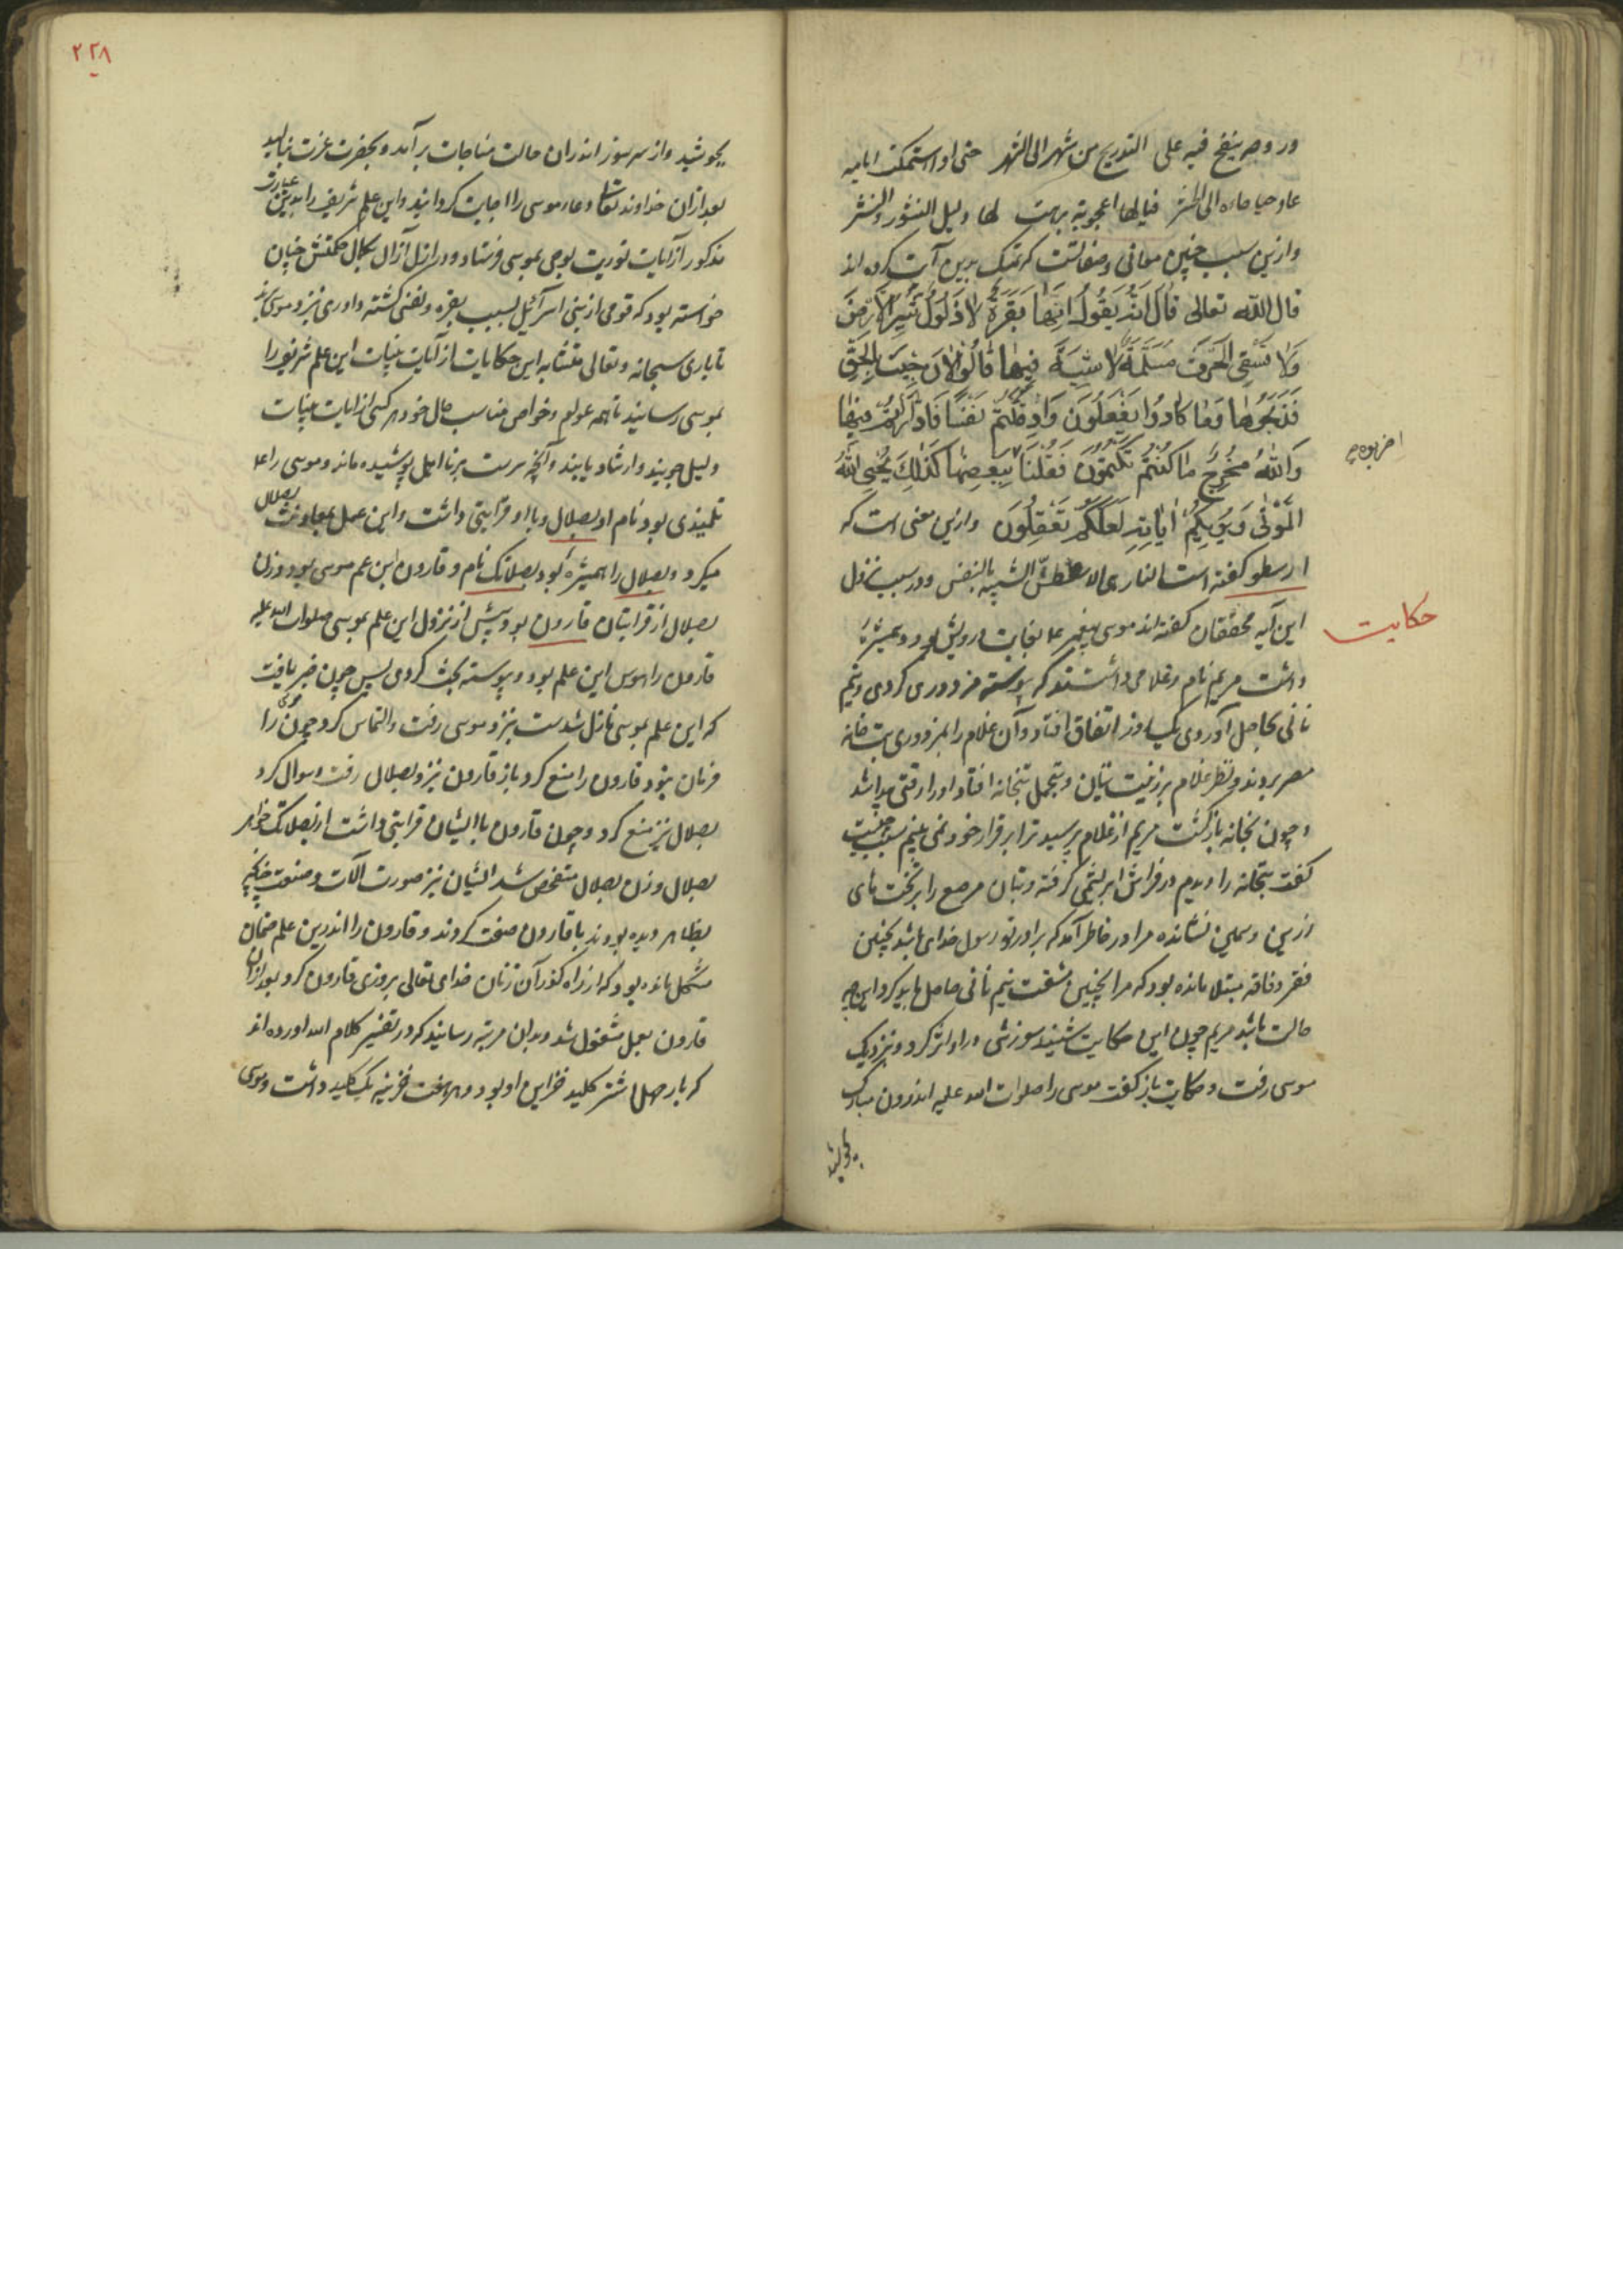 و روحه ینفخ فیه علی التدریج من شهر الی الشهر حتی اذا استمکنت
فیالها اعجوبة لها دلیل النشور والنشر
و ازین سبب چنین معانی و صفاتست که تمسک بدین آیت کرده اند
قال الله تعالی قَالَ اِنَّهُ يَقُولُ اِنَّهَا بَقَرَةٌ لَا ذَلُولٌ تُثِيرُ الْاَرْضَ
وَلَا تَسْقِی الْحَرْثَ مُسَلَّمَةٌ لَا شِيَةَ فِيهَا قَالُوا الْآنَ جِئْتَ بِالْحَقِّ
فَذَبَحُوهَا وَمَا كَادُوا يَفْعَلُونَ وَاِذْ قَتَلْتُمْ نَفْسًا فَادَّارَأْتُمْ فِيهَا
وَاللهُ مُخْرِجٌ مَا كُنْتُمْ تَكْتُمُونَ فَقُلْنَا اضْرِبُوهُ بِبَعْضِهَا كَذَلِكَ يُحْيِی اللهُ
الْمَوْتٰی وَيُرِيكُمْ اٰيَاتِهِ لَعَلَّكُمْ تَعْقِلُونَ و ازین معنی است که
ارسطو گفته است النار الشبیه بالنفس و در سبب نزول
این آیه محققان گفته اند موسی پیغمبر ع بغایت درویش بود و همشیرهٔ
حکایت
داشت مریم نام و غلامی داشتند که پیوسته مزدوری کردی و نیم
نانی بحاصل آوردی یک روز اتفاق افتاد و آن غلام را بمزدوری بت خانه
مصر بردند و نظر غلام بر زینت بتان و تجمل بتخانه افتاد او را رقتی پیدا شد
و چون بخانه بازگشت مریم از غلام پرسید ترا بر قرار خود نمی بینم سبب چیست
گفت بتخانه را دیدم در فراش ابریشمی گرفته و بتان مرصع را بر تخت های
زرین و سیمین نشانده مرا در خاطر آمد که برادر تو رسول خدای باشد بچنین
فقر و فاقه مبتلا مانده بود که مرا بچنین مشقت نیم نانی حاصل باید کرد این چه
حالت باشد مریم چون این حکایت شنید سوزشی در او اثر کرد و نزدیک
موسی رفت و حکایت باز گفت موسی را صلوات الله علیه اندرون مبارک
بجوشید
۲۲۸
بجوشید و از سر سوز اندران حالت مناجات برآمد و بحضرت عزت بنالید
بعد ازان خداوند تعالی دعاء موسی را اجابت گردانید و این علم شریف را بدین عبارت
مذکور از آیات توریت بوحی بموسی فرستاد و در ازل آزال بکمال حکمتش چنان
خواسته بود که قومی از بنی اسرائیل بسبب بقره و نفس کشته داوری نزد موسی برند
تا باری سبحانه و تعالی متشابه این حکایات از آیات بینات این علم شریف را
بموسی رسانید تا همه عوام و خواص مناسب حال خود هر کسی از آیات بینات
دلیل جویند و ارشاد یابند و آنچه سرست بر نااهل پوشیده ماند و موسی را ع
تلمیذی بود نام او بصلال و با او قرابتی داشت و این عمل بمعاونت بصلال
میکرد و بصلال را همشیرهٔ بود بصلاتک نام و قارون ابن عم موسی بود و زن
بصلال از قرابتان قارون بود و پیش از نزول این علم بموسی صلوات الله علیه
قارون را هوس این علم بود و پیوسته بحث کردی پس چون خبر یافت
که این علم بموسی نازل شدست نزد موسی رفت و التماس کرد چون موسی را
فرمان نبود قارون را منع کرد باز قارون نزد بصلال رفت و سوال کرد
بصلال نیز منع کرد و چون قارون با ایشان قرابتی داشت از بصلاتک خواهر
بصلال و زن بصلال متفحص شد ایشان نیز صورت آلات و صنعت چنانچه
بظاهر دیده بودند با قارون صفت کردند و قارون را اندرین علم چنان
مشکل مانده بود که از راه گذر آن زنان خدای تعالی بروزی قارون کرد بعد ازان
قارون بعمل مشغول شد و بدان مرتبه رسانید که در تفسیر کلام الله آورده اند
که بار چهل اشتر کلید خزاین او بود و هر هفت خزینه یک کلید داشت و موسی